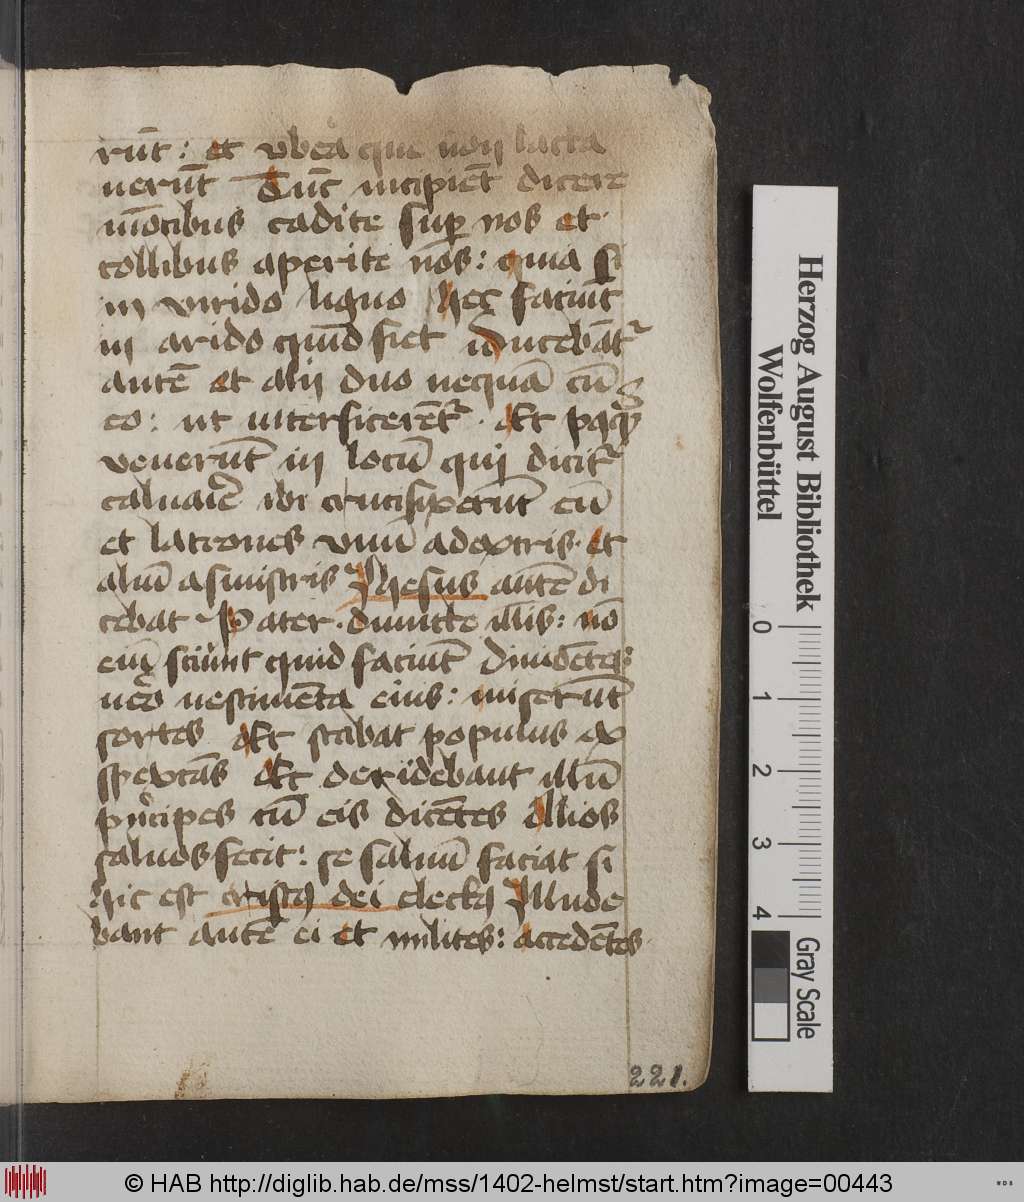 rūt : et vbera que non lacta
uerūt Tūc incipiēt dicere
mōtibus cadite sup nos et
collibus aperite nos : quia si
in virido ligno hec faciūt
in arido quid fiet ducebāt
autē et alij duo nequā cū
eo : ut interficerēt . Et
venerūt in locū qui dicit
caluarie ibi crucifixerūt eū
et latrones vnū adextris . et
aliū asinistris Jhesus autē di
cebat Pater . dimitte illis : nō
eni sciunt quid faciūt Diuidētes
uero uestimēta eius : miserūt
sortes Et stabat populus ex
spextās Et deridebant illū
pncipes cū eis dicētes Alios
saluos fecit : se saluū faciat si
hic est cristꝯ dei electꝯ Illude
bant autē ei et milites : accedētes
221.
Herzog August Bibliothek
Wolfenbüttel
0 1 2 3 4
Gray Scale
© HAB http://diglib.hab.de/mss/1402-helmst/start.htm?image=00443